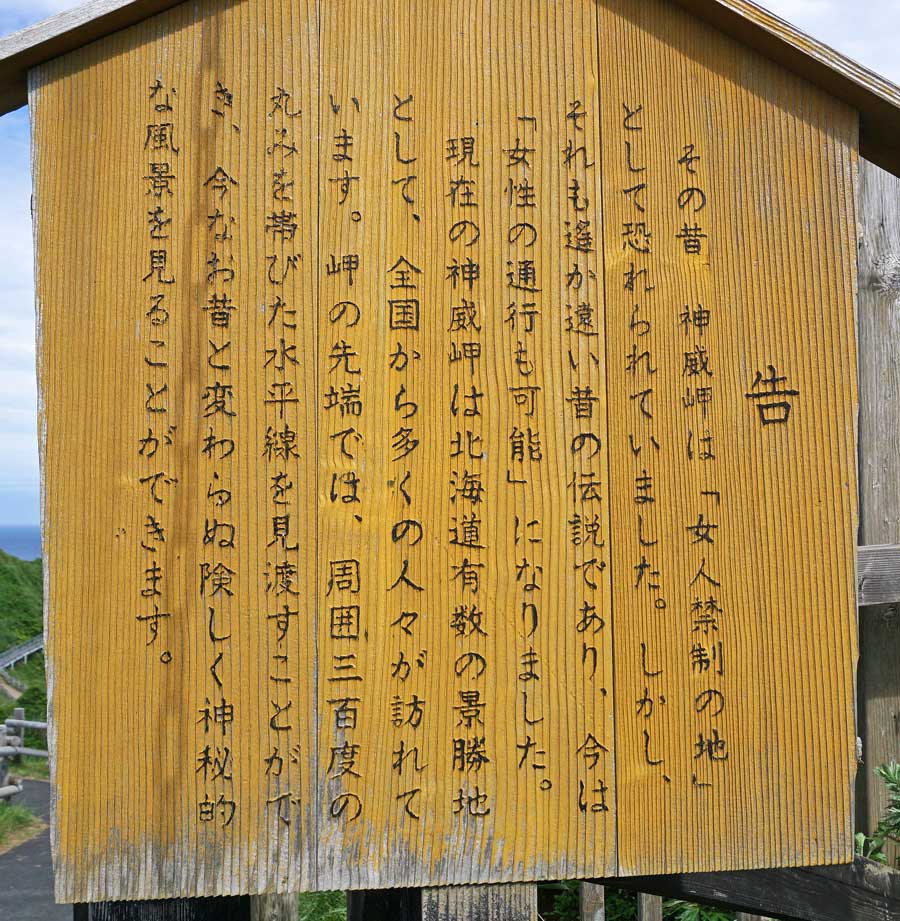 告
その昔　神威岬は「女人禁制の地」
として恐れられていました。しかし、
それも遙か遠い昔の伝説であり、今は
「女性の通行も可能」になりました。
現在の神威岬は北海道有数の景勝地
として、全国から多くの人々が訪れて
います。岬の先端では、周囲三百度の
丸みを帯びた水平線を見渡すことがで
き、今なお昔と変わらぬ険しく神秘的
な風景を見ることができます。